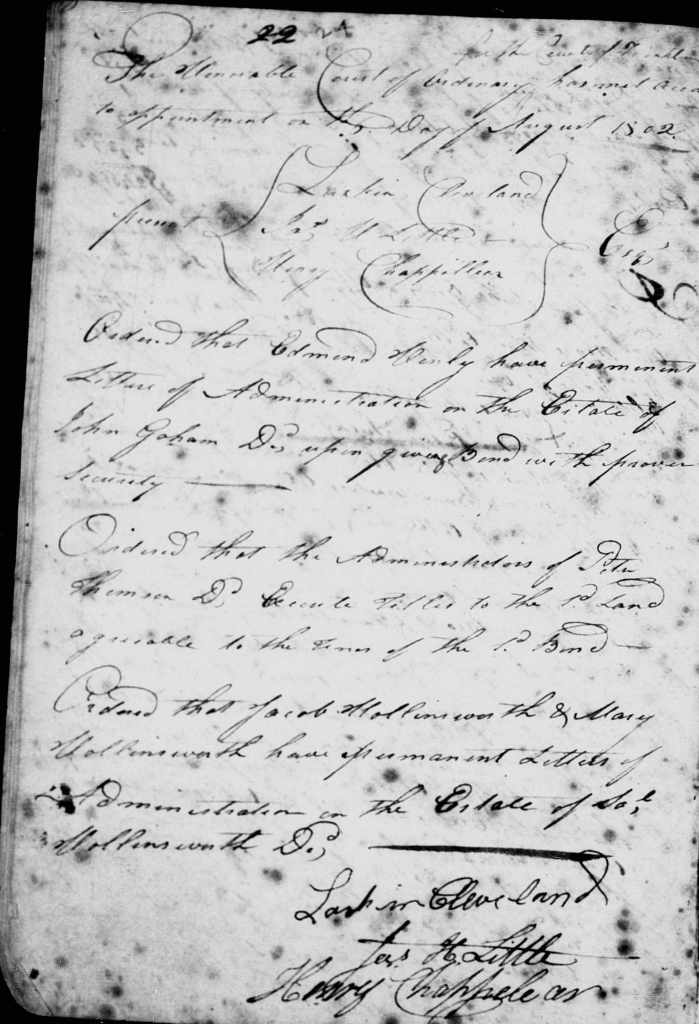 22 24
for the County of Franklin
The Honorable Court of Ordinary has met
to appointment on the Day of August 1802.
Larkin Cleveland
present Jas. H Little Esqrs
Henry Chappellear
Ordered that Edmond Henly have permenent
Letters of Administration on the Estate of
John Goham Dd. upon giveing Bond with prover
Security
Ordered that the Administrators of Peter
Thomson Dd. Execute Titles to the sd. Land
agreeable to the Tenor of the sd. Bond
Ordered that Jacob Hollinsworth & Mary
Hollinsworth have permanent Letters of
Administration on the Estate of Sal.
Hollinsworth Dd.
Larkin Cleveland
Jas. H. Little
Henry Chappelear